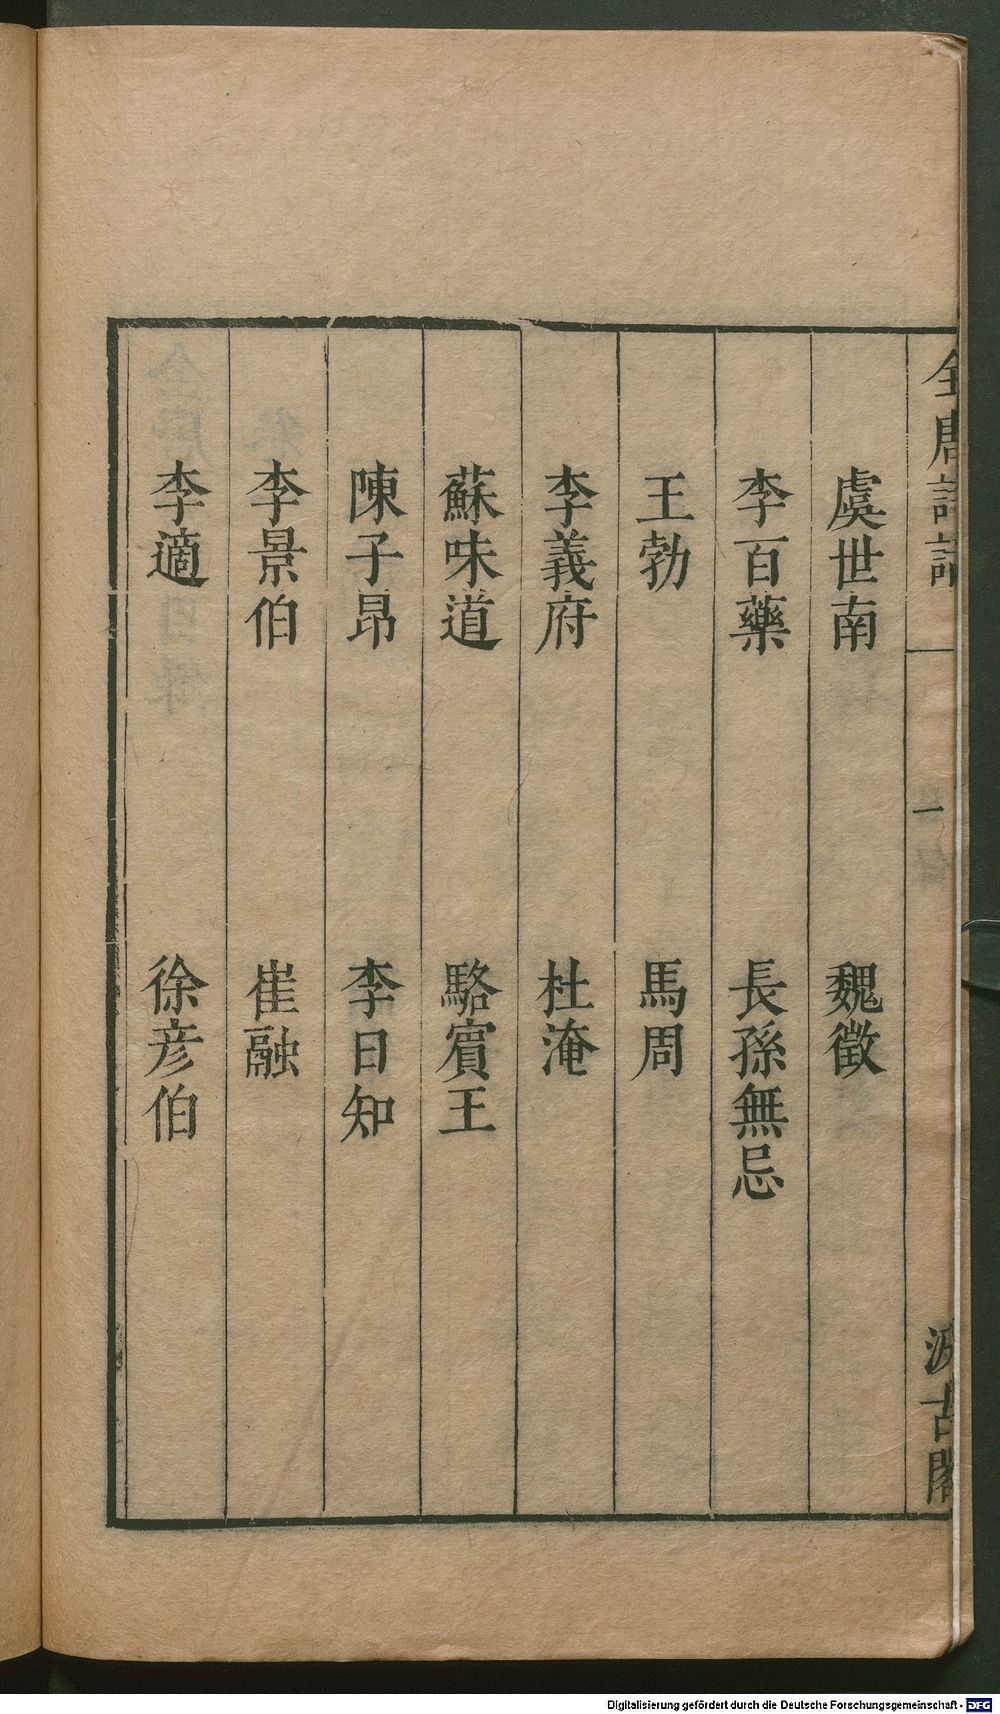 全唐詩話
一
汲古閣
虞世南 魏徵
李百藥 長孫無忌
王勃 馬周
李義府 杜淹
蘇味道 駱賓王
陳子昂 李日知
李景伯 崔融
李適 徐彦伯
Digitalisierung gefördert durch die Deutsche Forschungsgemeinschaft - DFG